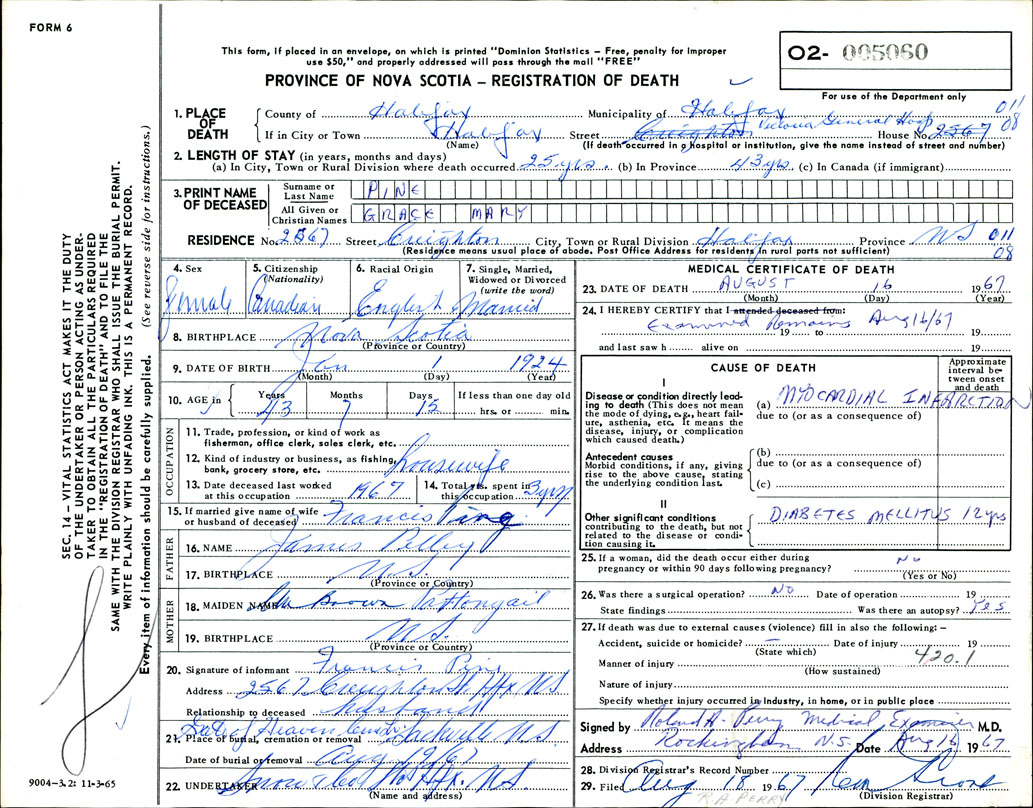 FORM 6
This form, if placed in an envelope, on which is printed "Dominion Statistics – Free, penalty for improper
use $50," and properly addressed will pass through the mail "FREE"
O2- 005080
PROVINCE OF NOVA SCOTIA – REGISTRATION OF DEATH
For use of the Department only
1. PLACE OF DEATH
County of Halifax Municipality of Halifax 011
If in City or Town Halifax Street Creighton Victoria General Hosp House No. 2567 08
(Name) (If death occurred in a hospital or institution, give the name instead of street and number)
2. LENGTH OF STAY (in years, months and days)
(a) In City, Town or Rural Division where death occurred 25 yrs. (b) In Province 43 yrs. (c) In Canada (if immigrant)
3. PRINT NAME OF DECEASED
Surname or Last Name PINE
All Given or Christian Names GRACE MARY
RESIDENCE No. 2567 Street Creighton City, Town or Rural Division Halifax Province NS 011
(Residence means usual place of abode. Post Office Address for residents in rural parts not sufficient) 08
4. Sex Female
5. Citizenship (Nationality) Canadian
6. Racial Origin English
7. Single, Married, Widowed or Divorced (write the word) Married
8. BIRTHPLACE Nova Scotia
(Province or Country)
9. DATE OF BIRTH Jan 1 1924
(Month) (Day) (Year)
10. AGE in Years 43 Months 7 Days 15 If less than one day old hrs. or min.
OCCUPATION
11. Trade, profession or kind of work as
fisherman, office clerk, sales clerk, etc.
12. Kind of industry or business, as fishing,
bank, grocery store, etc. housewife
13. Date deceased last worked
at this occupation 1967
14. Total yrs. spent in
this occupation
15. If married give name of wife
or husband of deceased Francis
FATHER
16. NAME James
17. BIRTHPLACE N.S.
(Province or Country)
MOTHER
18. MAIDEN NAME Brown
19. BIRTHPLACE N.S.
(Province or Country)
20. Signature of informant Francis Pine
Address 2567 Creighton St. Hfx N.S.
Relationship to deceased husband
21. Place of burial, cremation or removal Gate of Heaven N.S.
Date of burial or removal Aug 67
22. UNDERTAKER Snow Hfx. N.S.
(Name and address)
MEDICAL CERTIFICATE OF DEATH
23. DATE OF DEATH AUGUST 16 1967
(Month) (Day) (Year)
24. I HEREBY CERTIFY that I attended deceased from:
Examined Remains Aug 16/67
19 to 19
and last saw h alive on 19
CAUSE OF DEATH
Approximate interval between onset and death
I
Disease or condition directly leading to death (This does not mean the mode of dying, e.g., heart failure, asthenia, etc. It means the disease, injury, or complication which caused death.)
(a) MYOCARDIAL INFARCTION
due to (or as a consequence of)
Antecedent causes
Morbid conditions, if any, giving rise to the above cause, stating the underlying condition last.
(b)
due to (or as a consequence of)
(c)
II
Other significant conditions
contributing to the death, but not related to the disease or condition causing it.
DIABETES MELLITUS 12 yrs
25. If a woman, did the death occur either during
pregnancy or within 90 days following pregnancy? No
(Yes or No)
26. Was there a surgical operation? NO Date of operation 19
State findings Was there an autopsy? Yes
27. If death was due to external causes (violence) fill in also the following: –
Accident, suicide or homicide? – Date of injury 19
(State which) 420.1
Manner of injury
(How sustained)
Nature of injury
Specify whether injury occurred in industry, in home, or in public place
Signed by Roland A. Perry Medical Examiner M.D.
Address Rockingham N.S. Date Aug 16 1967
28. Division Registrar's Record Number
29. Filed Aug 18 1967
R A PERRY (Division Registrar)
SEC. 14 – VITAL STATISTICS ACT MAKES IT THE DUTY
OF THE UNDERTAKER OR PERSON ACTING AS UNDER-
TAKER TO OBTAIN ALL THE PARTICULARS REQUIRED
IN THE "REGISTRATION OF DEATH" AND TO FILE THE
SAME WITH THE DIVISION REGISTRAR WHO SHALL ISSUE THE BURIAL PERMIT.
WRITE PLAINLY WITH UNFADING INK. THIS IS A PERMANENT RECORD.
Every item of information should be carefully supplied. (See reverse side for instructions.)
9004–3.2: 11-3-65